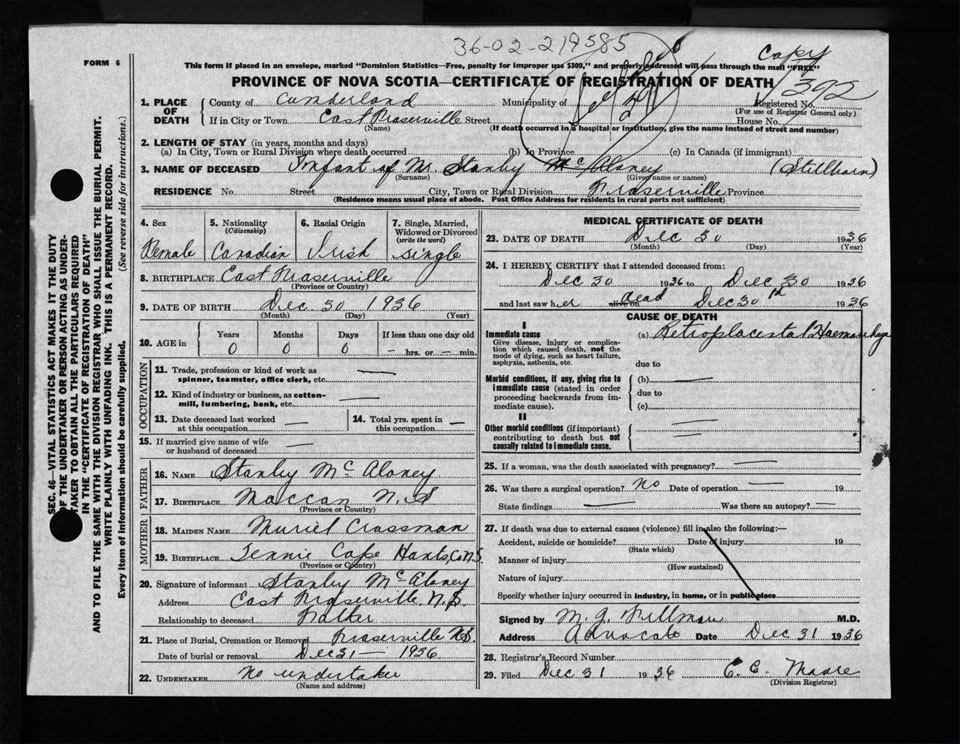 36-02-219585
Copy
FORM 6
This form if placed in an envelope, marked "Dominion Statistics—Free, penalty for improper use $300," and properly addressed will pass through the mail "FREE"
PROVINCE OF NOVA SCOTIA—CERTIFICATE OF REGISTRATION OF DEATH
392
1. PLACE OF DEATH
County of Cumberland Municipality of Registered No.
(For use of Registrar General only)
If in City or Town East Fraserville Street House No.
(Name) (If death occurred in a hospital or institution, give the name instead of street and number)
2. LENGTH OF STAY (in years, months and days)
(a) In City, Town or Rural Division where death occurred (b) In Province (c) In Canada (if immigrant)
3. NAME OF DECEASED Infant of Mr. Stanley McAloney (Stillborn)
(Surname) (Given name or names)
RESIDENCE No. Street City, Town or Rural Division Fraserville Province
(Residence means usual place of abode. Post Office Address for residents in rural parts not sufficient)
4. Sex 5. Nationality 6. Racial Origin 7. Single, Married,
(Citizenship) Widowed or Divorced
(write the word)
Female Canadian Irish single
8. BIRTHPLACE East Fraserville
(Province or Country)
9. DATE OF BIRTH Dec. 30 1936
(Month) (Day) (Year)
10. AGE in Years Months Days If less than one day old
0 0 0 — hrs. or — min.
OCCUPATION
11. Trade, profession or kind of work as
spinner, teamster, office clerk, etc. —
12. Kind of industry or business, as cotton-
mill, lumbering, bank, etc. —
13. Date deceased last worked
at this occupation —
14. Total yrs. spent in
this occupation —
15. If married give name of wife
or husband of deceased —
FATHER
16. NAME Stanley McAloney
17. BIRTHPLACE Maccan N.S
(Province or Country)
MOTHER
18. MAIDEN NAME Muriel Crossman
19. BIRTHPLACE Tennie Cape Hants Co N.S.
(Province or Country)
20. Signature of informant Stanley McAloney
Address East Fraserville, N.S.
Relationship to deceased Father
21. Place of Burial, Cremation or Removal Fraserville NS.
Date of burial or removal Dec 31 — 1936
22. UNDERTAKER No undertaker
(Name and address)
MEDICAL CERTIFICATE OF DEATH
23. DATE OF DEATH Dec 30 1936
(Month) (Day) (Year)
24. I HEREBY CERTIFY that I attended deceased from:
Dec 30 1936 to Dec 30 1936
and last saw her alive on dead Dec 30th 1936
CAUSE OF DEATH
I
Immediate cause
Give disease, injury or complica-
tion which caused death, not the
mode of dying, such as heart failure,
asphyxia, asthenia, etc.
(a) Retroplacental Haemorrhage
due to
Morbid conditions, if any, giving rise to
immediate cause (stated in order
proceeding backwards from im-
mediate cause).
(b) —
due to
(c)
II
Other morbid conditions (if important)
contributing to death but not
causally related to immediate cause.
25. If a woman, was the death associated with pregnancy? —
26. Was there a surgical operation? No Date of operation — 19
State findings — Was there an autopsy? —
27. If death was due to external causes (violence) fill in also the following:—
Accident, suicide or homicide? Date of injury 19
(State which)
Manner of injury
(How sustained)
Nature of injury
Specify whether injury occurred in industry, in home, or in public place
Signed by M. J. Fillmore M.D.
Address Advocate Date Dec 31 1936
28. Registrar's Record Number
29. Filed Dec 31 1936 C. E. Moore
(Division Registrar)
SEC. 46—VITAL STATISTICS ACT MAKES IT THE DUTY
OF THE UNDERTAKER OR PERSON ACTING AS UNDER-
TAKER TO OBTAIN ALL THE PARTICULARS REQUIRED
IN THE "CERTIFICATE OF REGISTRATION OF DEATH"
AND TO FILE THE SAME WITH THE DIVISION REGISTRAR WHO SHALL ISSUE THE BURIAL PERMIT.
WRITE PLAINLY WITH UNFADING INK. THIS IS A PERMANENT RECORD.
Every item of information should be carefully supplied. (See reverse side for instructions.)